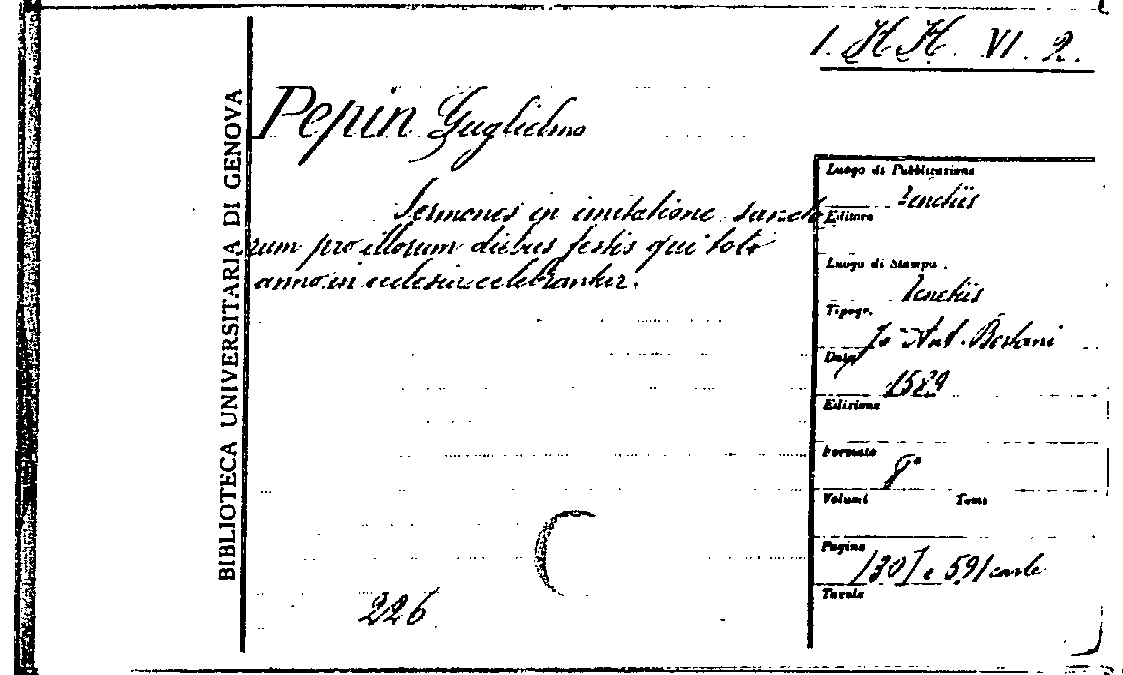 1. HH. VI. 2.
BIBLIOTECA UNIVERSITARIA DI GENOVA
Pepin Guglielmo
Sermones in imitatione sancto
rum pro illorum diebus festis qui toto
anno in ecclesia celebrantur.
226
Luogo di Pubblicazione
Venetiis
Editore
Luogo di Stampa
Venetiis
Tipogr.
Jo Ant. Bertani
Data
1589
Edizione
Formato
8°
Volumi Tomi
Pagine
[30] e 591 carte
Tavole